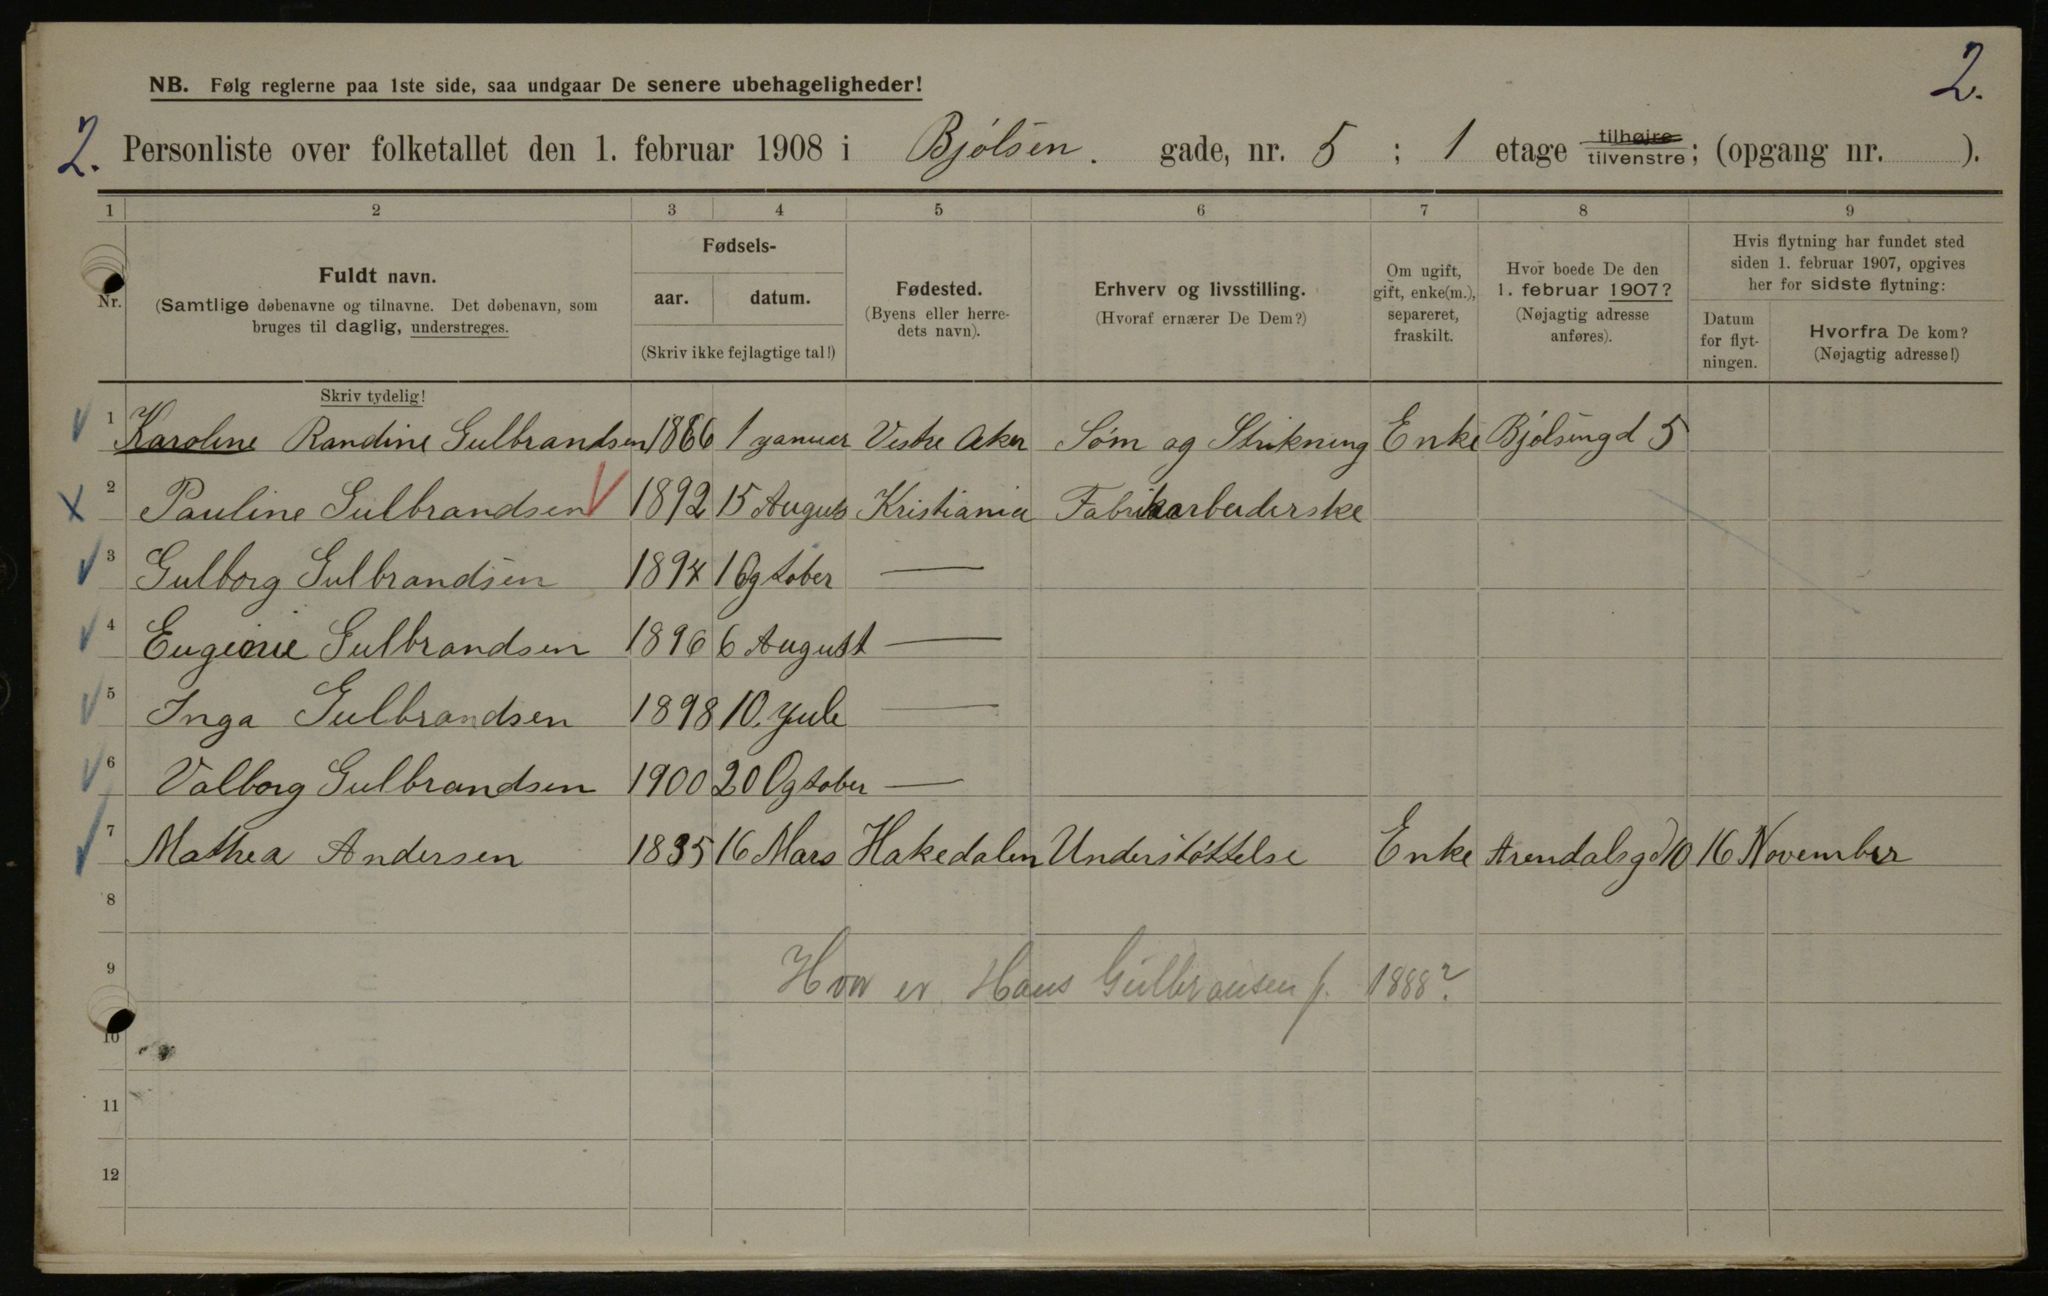 2.
NB. Følg reglerne paa 1ste side, saa undgaar De senere ubehageligheder!
2. Personliste over folketallet den 1. februar 1908 i Bjølsen. gade, nr. 5 ; 1 etage tilhøjre tilvenstre; (opgang nr. ).
1 2 3 4 5 6 7 8 9
Nr.
Fuldt navn.
(Samtlige døbenavne og tilnavne. Det døbenavn, som
bruges til daglig, understreges.
Skriv tydelig!
Fødsels-
aar. datum.
(Skriv ikke fejlagtige tal!)
Fødested.
(Byens eller herre-
dets navn).
Erhverv og livsstilling.
(Hvoraf ernærer De Dem?)
Om ugift,
gift, enke(m.),
separeret,
fraskilt.
Hvor boede De den
1. februar 1907?
(Nøjagtig adresse
anføres).
Hvis flytning har fundet sted
siden 1. februar 1907, opgives
her for sidste flytning:
Datum
for flyt-
ningen.
Hvorfra De kom?
(Nøjagtig adresse!)
1 Karoline Randine Gulbrandsen 1866 1 yanuer Vestre Aker Søm og Strikning Enke Bjølsingd 5
2 Pauline Gulbrandsen 1892 15 August Kristiania Fabrikarbeiderske
3 Gulborg Gulbrandsen 1894 1 Ogtober —
4 Eugenie Gulbrandsen 1896 6 August —
5 Inga Gulbrandsen 1898 10. yule —
6 Valborg Gulbrandsen 1900 20 Ogtober —
7 Mathea Andersen 1835 16 Mars Hakedalen Understøttelse Enke Arendalsgd 10 16 November
8
9 Hvor er Hans Gulbransen f. 1888?
10
11
12